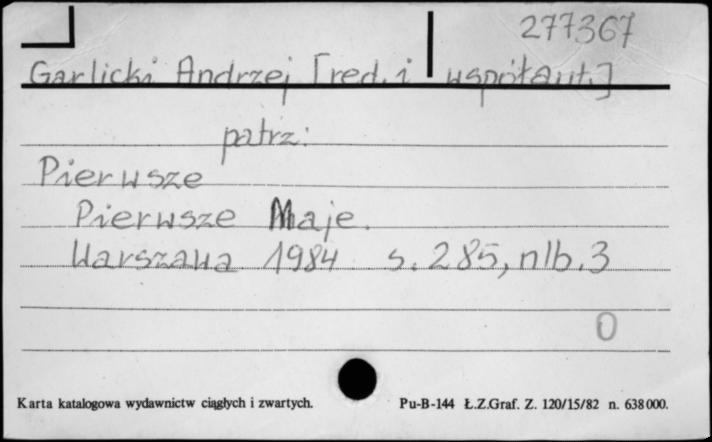 277367
Garlicki Andrzej [red. i współaut.]
patrz:
Pierwsze
Pierwsze Maje.
Warszawa 1984 s. 285, nlb. 3
0
Karta katalogowa wydawnictw ciągłych i zwartych. Pu-B-144 Ł.Z.Graf. Z. 120/15/82 n. 638000.